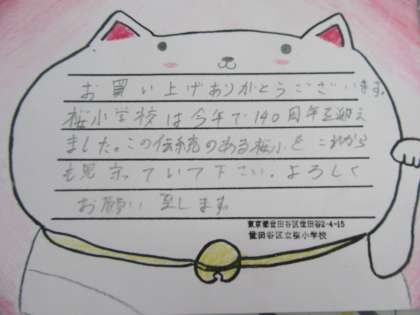 お買い上げありがとうございます。
桜小学校は今年で140周年を迎え
ました。この伝統のある桜小をこれから
も見守っていて下さい。よろしく
お願い致します。
東京都世田谷区世田谷2-4-15
世田谷区立桜小学校